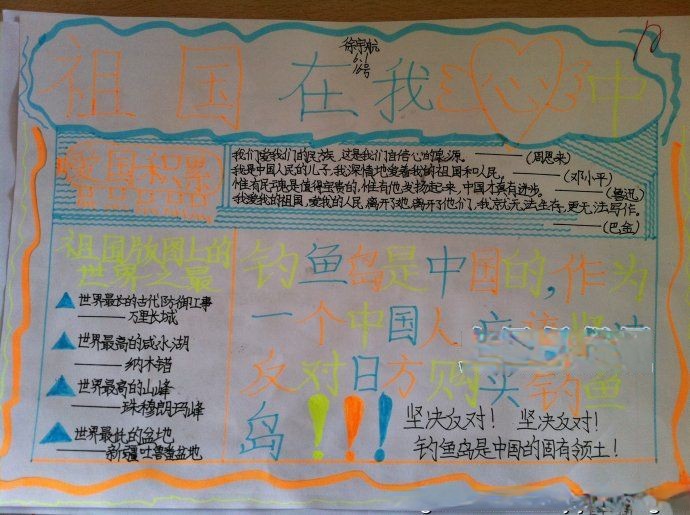 祖国在我心中
徐宇航
6.1
16号
爱国积累
我们爱我们的民族,这是我们自信心的泉源。——(周恩来)
我是中国人民的儿子,我深情地爱着我的祖国和人民。——(邓小平)
惟有民魂是值得宝贵的,惟有他发扬起来,中国才真有进步。——(鲁迅)
我爱我的祖国,爱我的人民,离开了她,离开了他们,我就无法生存,更无法写作。
——(巴金)
祖国版图上的
世界之最
世界最长的古代防御工事
——万里长城
世界最高的咸水湖
——纳木错
世界最高的山峰
——珠穆朗玛峰
世界最低的盆地
——新疆吐鲁番盆地
钓鱼岛是中国的,作为
一个中国人
反对日方购买钓鱼
岛!!!
坚决反对! 坚决反对!
钓鱼岛是中国的固有领土!